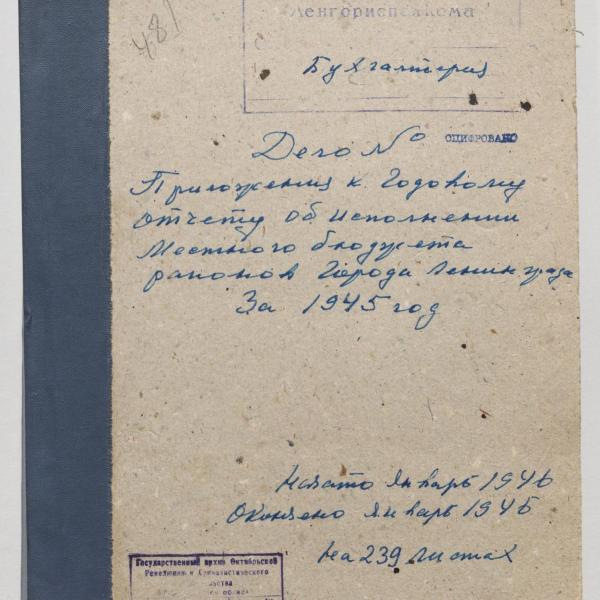 481
Ленгорисполкома
Бухгалтерия
Дело №
ОЦИФРОВАНО
Приложения к Годовому
отчету об исполнении
Местного бюджета
районов Города Ленинграда
За 1945 год
Начато Январь 1946
Окончено Январь 1946
На 239 листах
Государственный архив Октябрьской
Революции и Социалистического